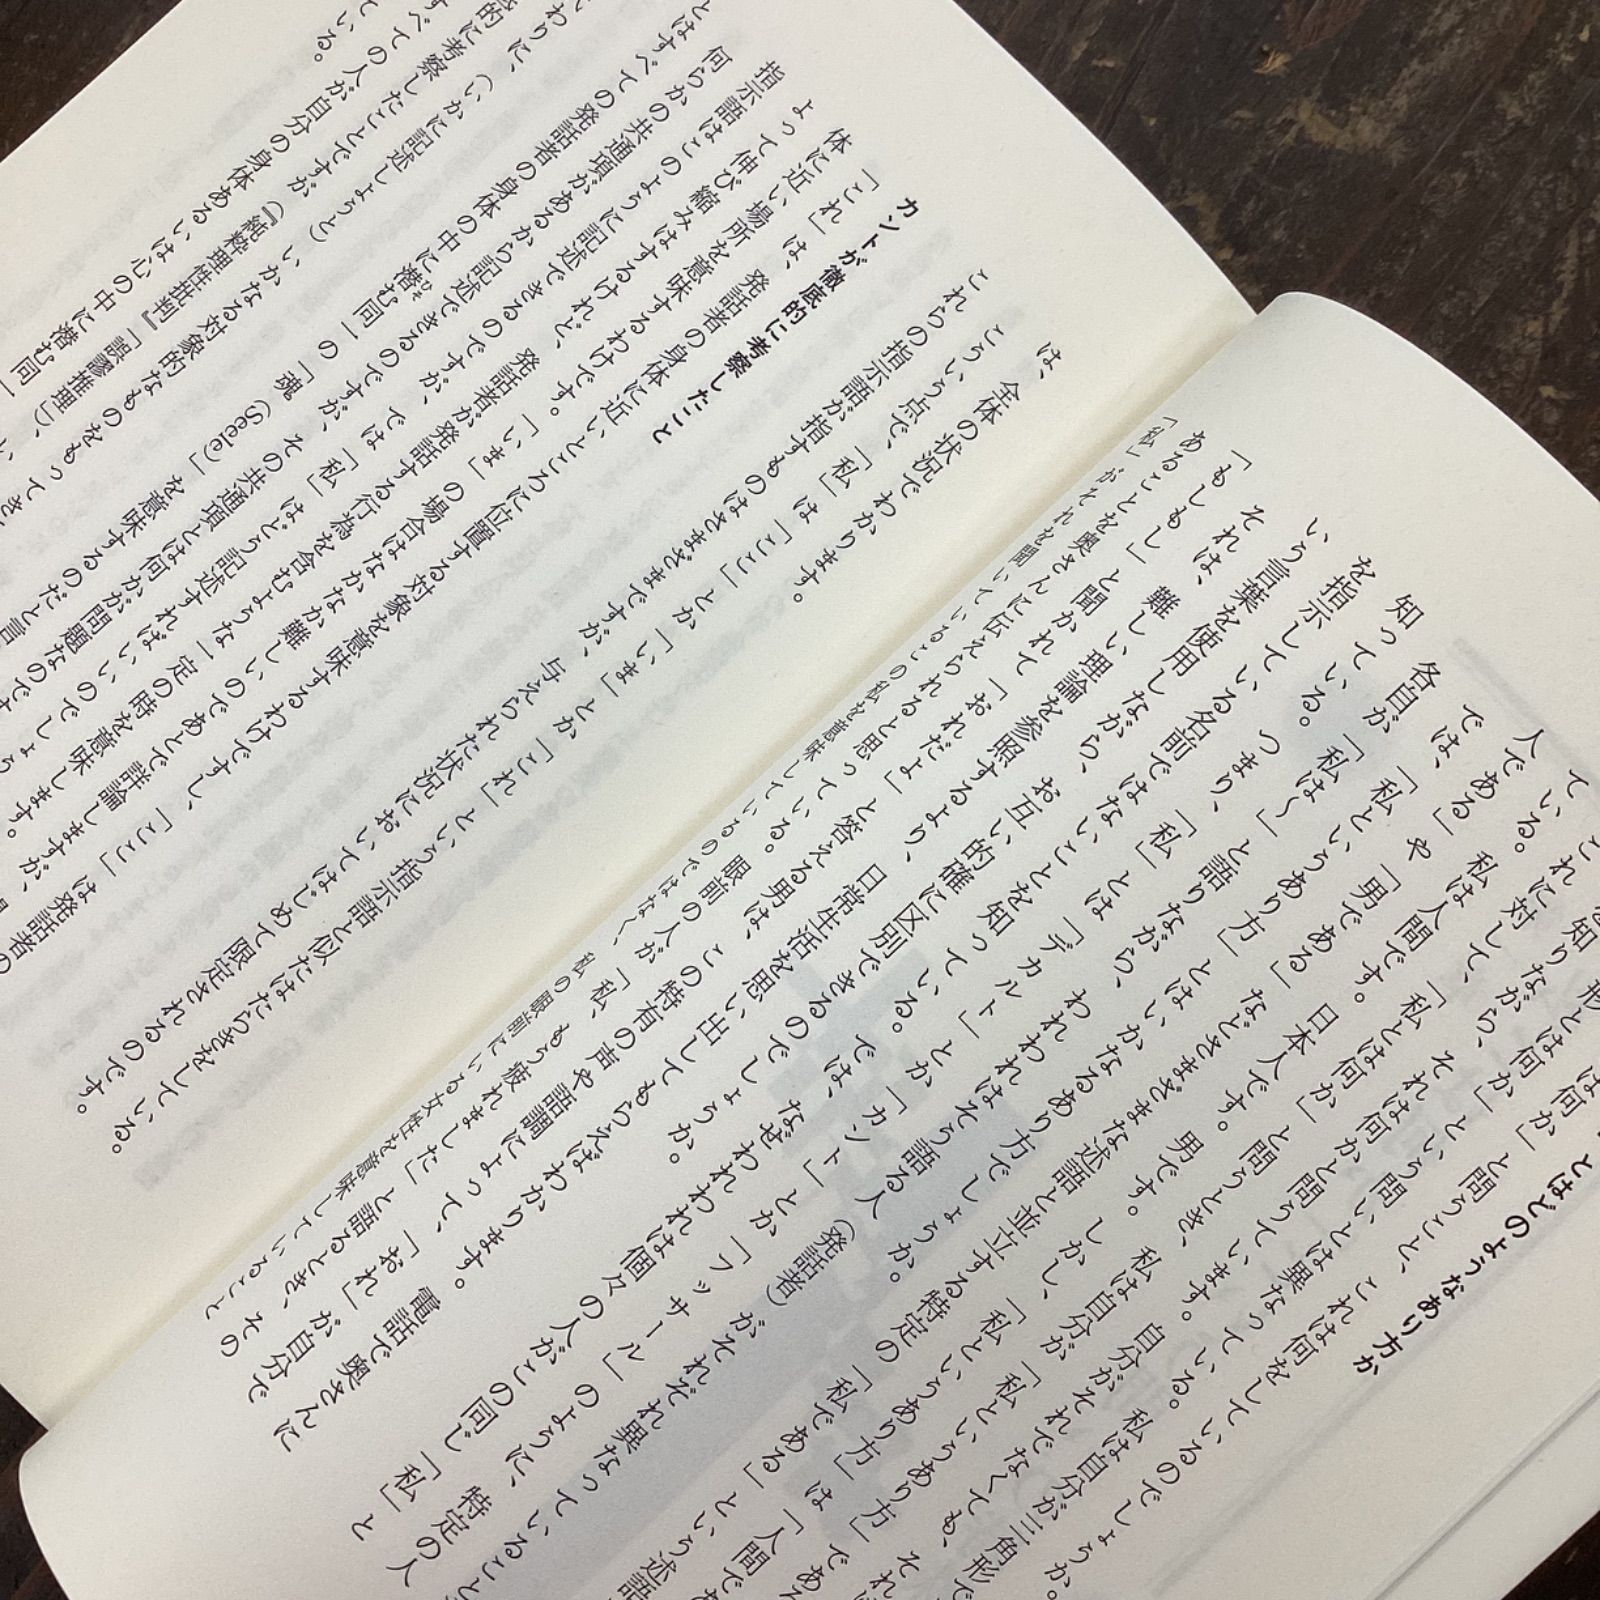 とはどのようなあり方か
は何か」と問うこと、これは何をしているのでしょうか。
形とは何か」という問いとは異なっている。私は自分が三角形で
を知りながら、それは何かと問うています。自分がそれでなくても、それ
これに対して、「私とは何か」と問うとき、私は自分が「私というあり方」であ
ている。私は人間です。日本人です。男です。しかし、「私というあり方」は「人間であ
人である」や「男である」などさまざまな述語と並立する特定の「私である」という述語
では、「私というあり方」とはいかなるあり方でしょうか。
各自が「私は〜」と語りながら、われわれはそう語る人(発話者)がそれぞれ異なっていること
知っている。つまり、「私」とは「デカルト」とか「カント」とか「フッサール」のように、特定の人
を指示している名前ではないことを知っている。では、なぜわれわれは個々の人がこの同じ「私」と
いう言葉を使用しながら、お互い的確に区別できるのでしょうか。
それは、難しい理論を参照するより、日常生活を思い出してもらえばわかります。電話で奥さんに
「もしもし」と聞かれて「おれだよ」と答える男は、この特有の声や語調によって、「おれ」が自分で
あることを奥さんに伝えられると思っている。眼前の人が「私、もう疲れました」と語るとき、その
「私」がそれを聞いているこの私を意味しているのではなく、私の眼前にいる女性を意味していること
は、全体の状況でわかります。
こういう点で、「私」は「ここ」とか「いま」とか「これ」という指示語と似たはたらきをしている。
これらの指示語が指すものはさまざまですが、与えられた状況においてはじめて限定されるのです。
カントが徹底的に考察したこと
「これ」は、発話者の身体に近いところに位置する対象を意味するわけですし、「ここ」は発話者の
体に近い場所を意味するわけです。「いま」の場合はなかなか難しいのであとで詳論しますが、
よって伸び縮みはするけれど、発話者が発話する行為を含むような一定の時を意味します。
指示語はこのように記述できるのですが、では「私」はどう記述すればいいのでしょう
何らかの共通項があるから記述できるのですが、その共通項とは何かが問題なのです
とはすべての発話者の身体の中に潜む同一の「魂(Seele)」を意味するのだと言
わりに、(いかに記述しようと)いかなる対象的なものをもってき
的に考察したことですが(『純粋理性批判』「誤謬推理」)、
べての人が自分の身体あるいは心の中に潜む同一
いる。